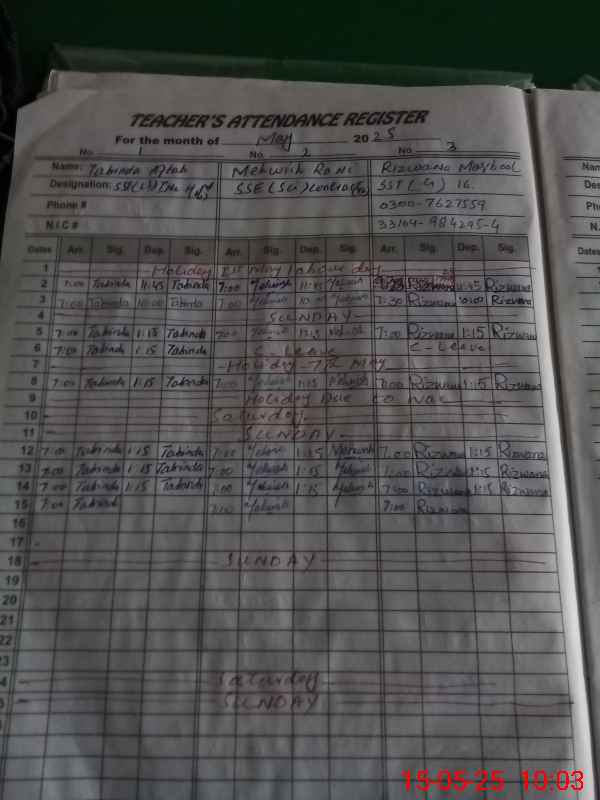 TEACHER'S ATTENDANCE REGISTER
For the month of May 2025
No. 1 No. 2 No. 3
Name: Tabinda Mehwish Rani Rizwana
Designation: SSE (Sci) SST (G) 16.
Phone # 0300-7627559
N.I.C # 33104-984295-4
Dates Arr. Sig. Dep. Sig. Arr. Sig. Dep. Sig. Arr. Sig. Dep. Sig.
1 Holiday 1st May labour day
2 7:00 Tabinda 11:45 Tabinda 7:00 Mehwish 11:45 Mehwish 11:45 Rizwana
3 7:00 Tabinda 10:00 Tabinda 7:00 Mehwish Mehwish 7:30 Rizwana 10:00 Rizwana
4 SUNDAY
5 7:00 Tabinda 1:15 Tabinda 7:00 Mehwish 1:15 Mehwish 7:00 Rizwana 1:15 Rizwana
6 7:00 Tabinda 1:15 Tabinda C-Leave C-Leave
7 Holiday - 7th May
8 7:00 Tabinda 1:15 Tabinda 7:00 Mehwish 1:15 Mehwish 7:00 Rizwana 1:15 Rizwana
9 Holiday Due to War
10 Saturday
11 SUNDAY
12 7:00 Tabinda 1:15 Tabinda 7:00 Mehwish 1:15 Mehwish 7:00 Rizwana 1:15 Rizwana
13 7:00 Tabinda 1:15 Tabinda 7:00 Mehwish 1:15 Mehwish 7:00 Rizwana 1:15 Rizwana
14 7:00 Tabinda 1:15 Tabinda 7:00 Mehwish 1:15 Mehwish 7:00 Rizwana 1:15 Rizwana
15 7:00 Tabinda 7:00 Mehwish 7:00 Rizwana
16
17
18 SUNDAY
19
20
21
22
23
4 Saturday
SUNDAY
15-05-25 10:03